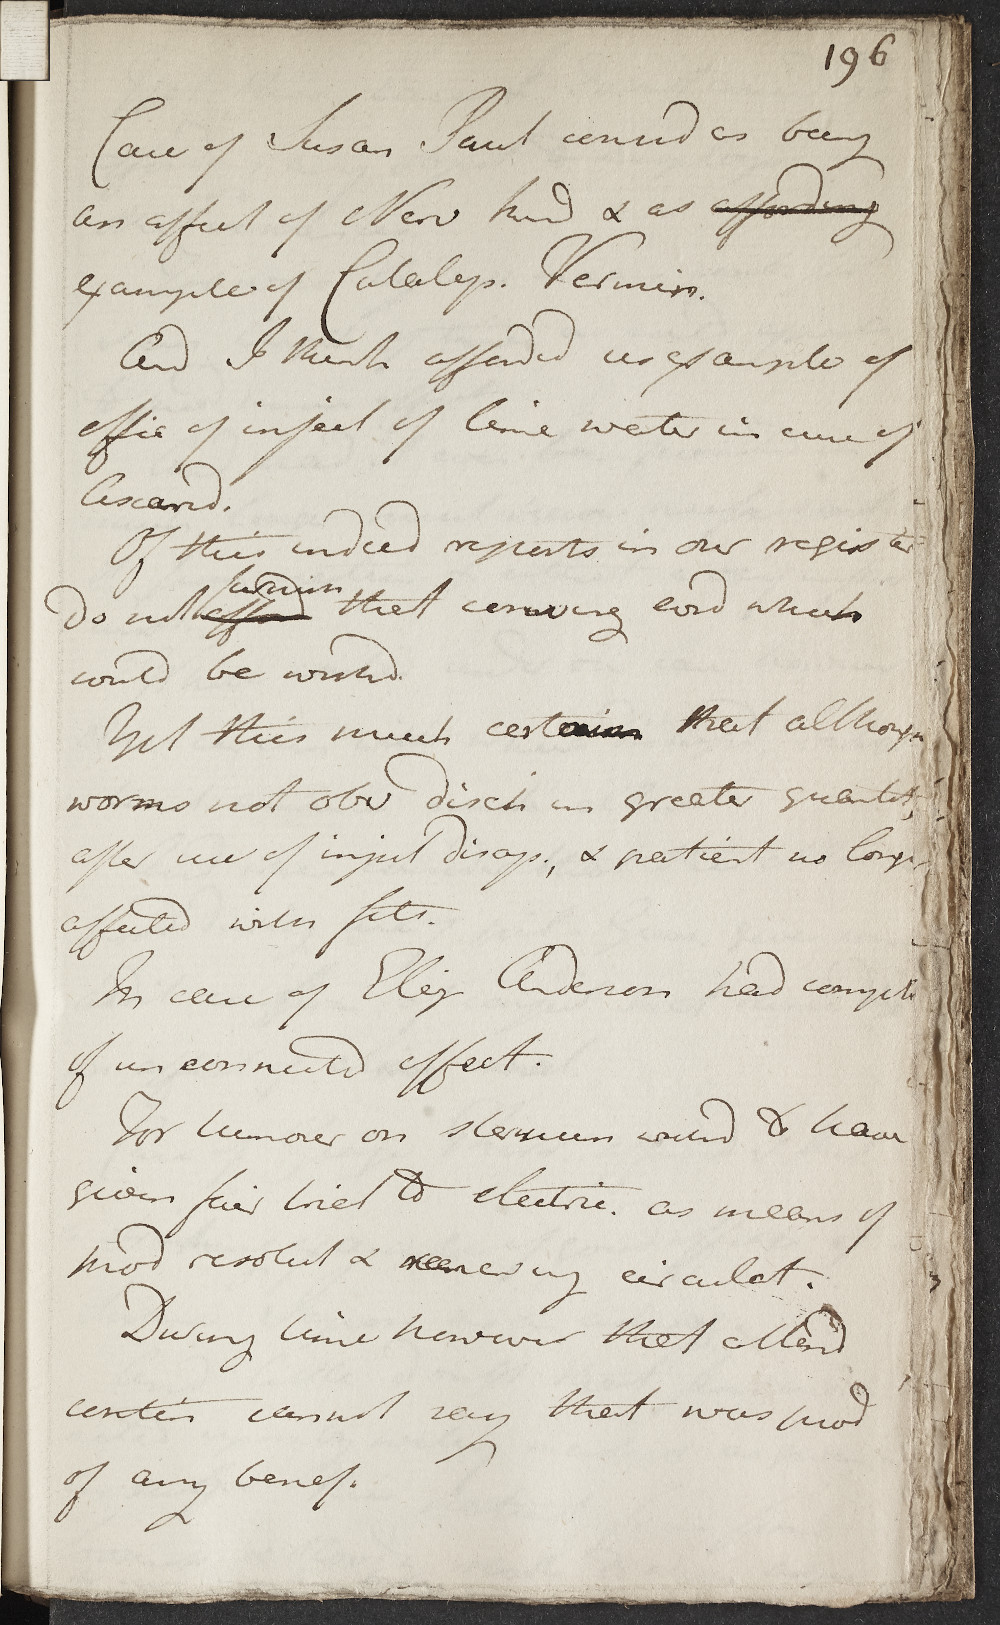 196
Case of Susan Paul consid as being
an affect of Nerv kind & as affording
example of Catalep. Vermin.
And I think afforded us example of
effic of inject of lime water in cure of
Ascarid.
Of this indeed reports in our register
furnish
do not afford that convincing evid which
could be wished.
Yet this much certain that although
worms not obsv disch in greater quantity,
after use of inject disap., & patient no longer
affected with fits.
In case of Eliz Anderson had complic
of unconnected affect.
For tumour on sternum would have
given fair trial to electric. as means of
prod resolut & renewing circulat.
During time however that attend
contin cannot say that was prod
of any benef.